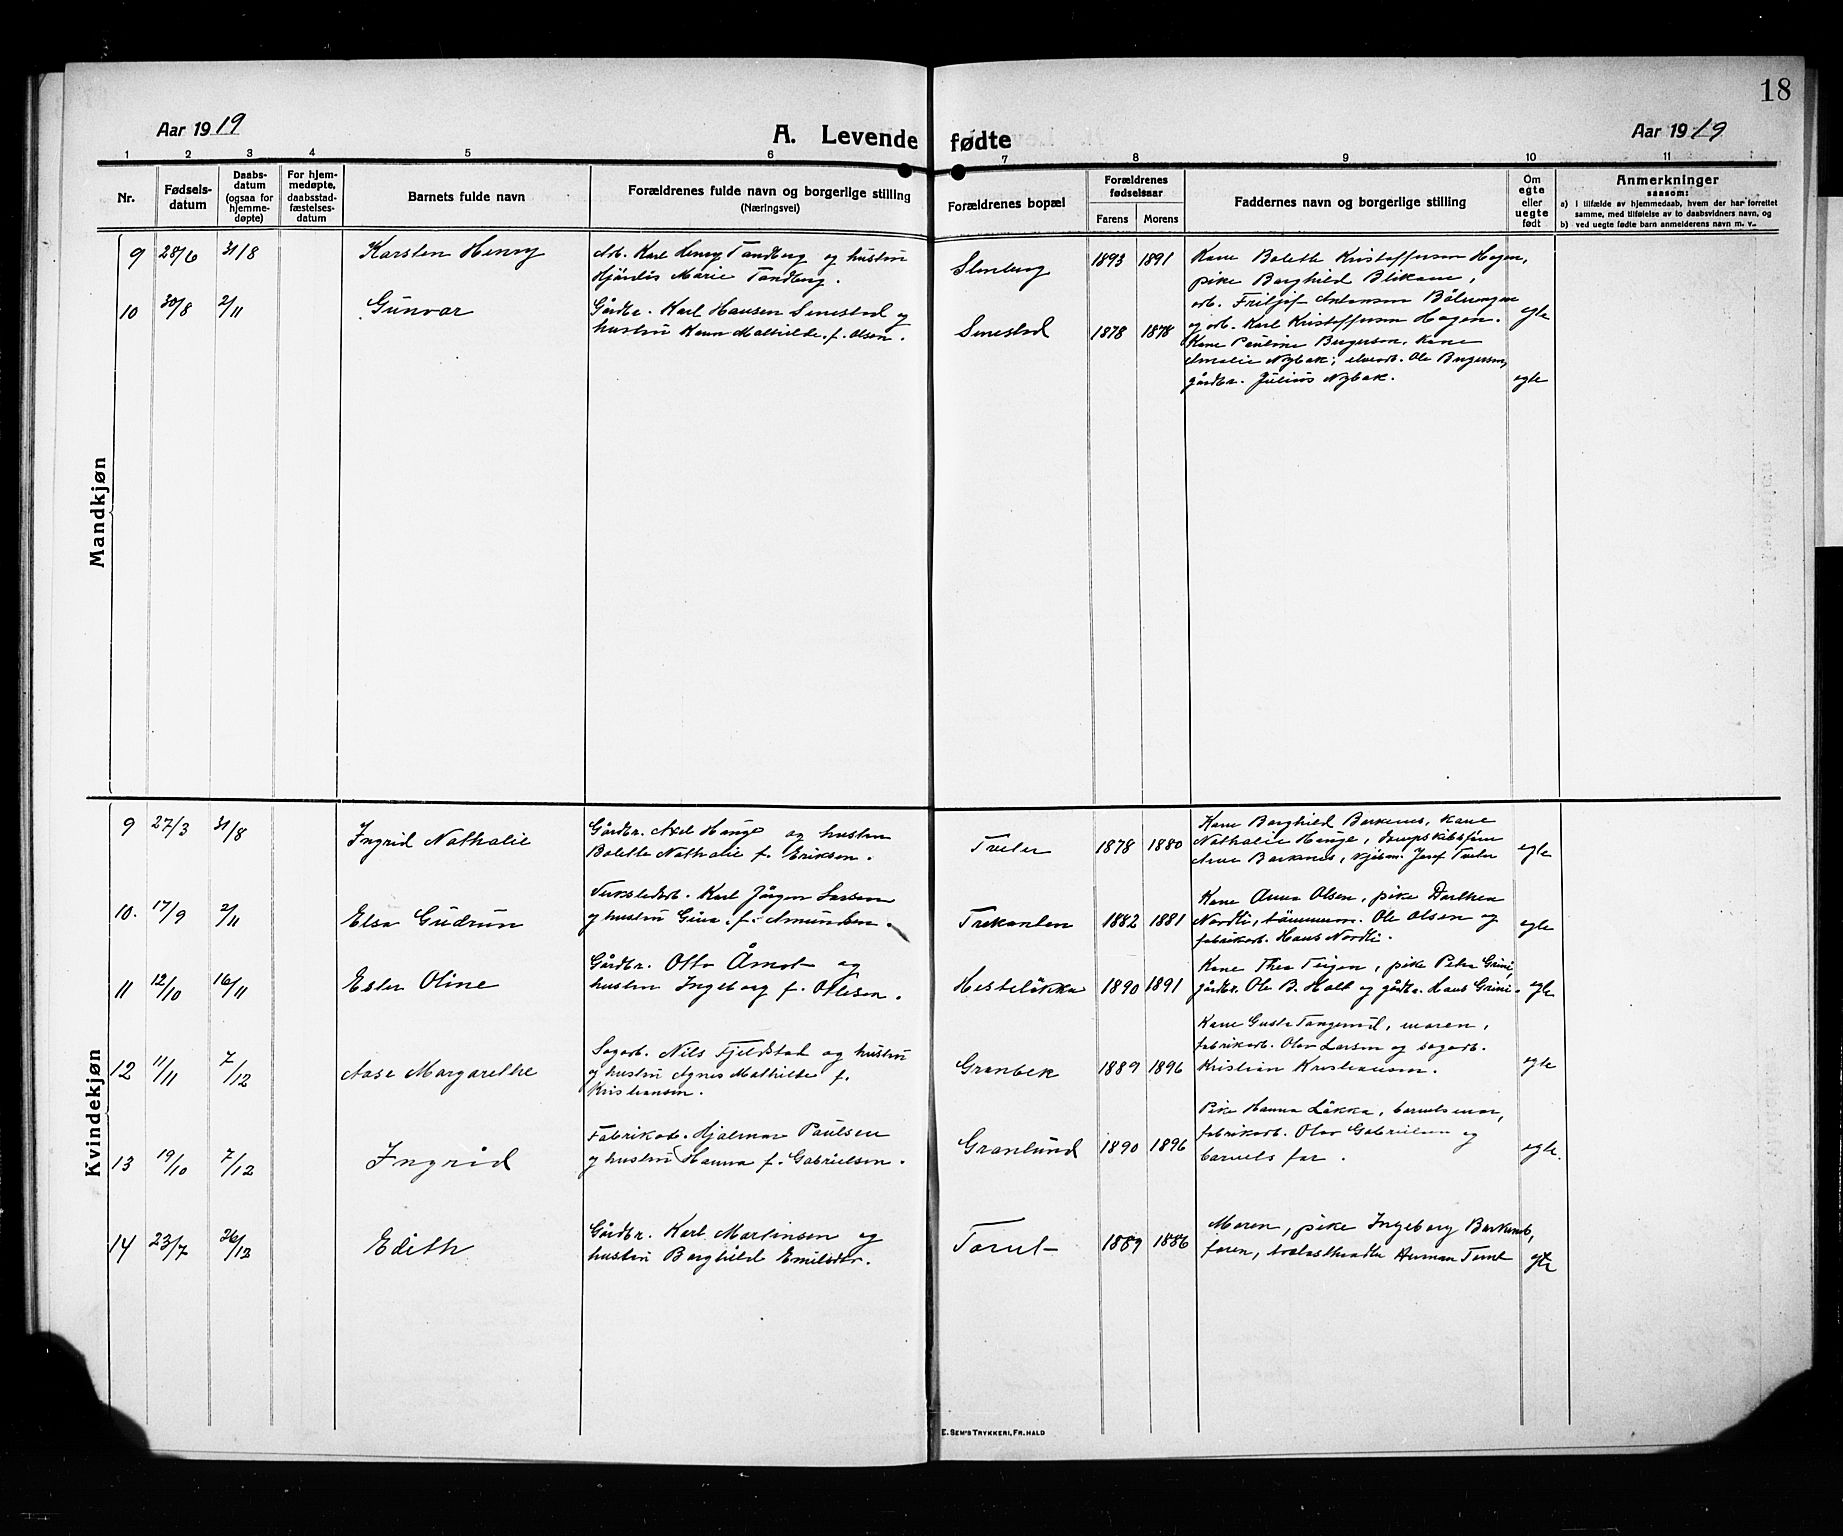 18
Aar 1919
A. Levende fødte
Aar 1919
1 2 3 4 5 6 7 8 9 10 11
Nr.
Fødsels-
datum
Daabs-
datum
(ogsaa for
hjemme-
døpte)
For hjem-
medøpte,
daabsstad-
fæstelses-
datum
Barnets fulde navn
Forældrenes fulde navn og borgerlige stilling
(Næringsvei)
Forældrenes bopæl
Forældrenes
fødselsaar
Farens Morens
Faddernes navn og borgerlige stilling
Om
egte
eller
uegte
født
Anmerkninger
saasom:
a) I tilfælde av hjemmedaab, hvem der har forrettet
samme, med tilføielse av to daabsvidners navn, og
b) ved uegte fødte barn anmelderens navn m. v..
Mandkjøn
9 28/6 31/8 Karsten Henry
Arb. Karl Henry Tandberg og hustru
Hjördis Marie Tandberg.
Stenberg 1893 1891
Kone Bolette Kristoffersen Hagen,
pike Borghild Blikane,
arb. Fritjof Andersen
og arb. Karl Kristoffersen Hagen. egte
10 30/8 2/11 Gunvar
Gårdbr. Karl Hansen Smestad og
hustru Mathilde f. Olsen.
Smestad 1878 1878
Kone Pauline Bergersen, kone
Amalie Nybak, Ole Bergersen,
gårdbr. Julius Nybak. egte
Kvindekjøn
9 27/3 31/8 Ingrid Nathalie
Gårdbr. Axel Hauge og hustru
Bolette Nathalie f. Eriksen.
Tveter 1878 1880
Kone Borghild Barknes, kone
Nathalie Hauge,
Arne Barknes, Josef Tveter egte
10. 17/9 2/11 Elsa Gudrun
Verkstedarb. Karl Jörgen Larsen
og hustru Gina f. Amundsen.
Trekanten 1882 1881
Kone Anna Olsen, pike Dorthea
Nordli, tömmerm. Ole Olsen og
fabrikarb. Hans Nordli. egte
11 12/10 16/11 Ester Oline
Gårdbr. Otto Åmot og
hustru Ingeborg f. Olesen.
Hestelökka 1890 1891
Kone Thea Teigen, pike Petra Grini,
gårdbr. Ole B. Holt og gårdbr. Hans Grini. egte
12 11/11 7/12 Aase Margarethe
Sagarb. Nils Fjeldstad og hustru
og hustru Agnes Mathilde f.
Kristiansen.
Granbek 1889 1896
Kone Gusta Tangerud, moren,
fabrikarb. Olav Larsen og sagarb.
Kristian Kristiansen. egte
13 19/10 7/12 Ingrid
Fabrikarb. Hjalmar Paulsen
og hustru Hanna f. Gabrielsen.
Granlund 1890 1896
Pike Hanna Lökka, barnets mor,
fabrikarb. Olav Gabrielsen og
barnets far. egte.
14 23/7 26/12 Edith
Gårdbr. Karl Martinsen og
hustru Borghild Emilsdtr.
Tomt 1889 1886
Moren, pike Ingeborg Barknes,
faren, trelasthandler Herman Tomt egte
E. SEM'S TRYKKERI, FR.HALD